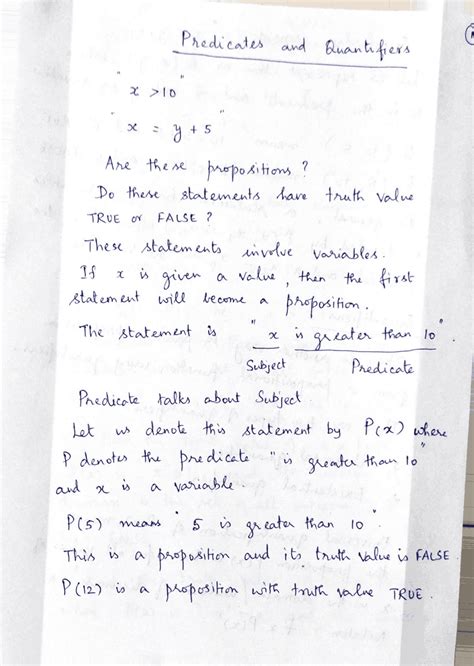 Predicates and Quantifiers
"x >10"
"x = y + 5"
Are these propositions?
Do these statements have truth value
TRUE or FALSE?
These statements involve variables.
If x is given a value, then the first
statement will become a proposition.
The statement is "x is greater than 10".
Subject Predicate
Predicate talks about Subject
Let us denote this statement by P(x) where
P denotes the predicate "is greater than 10"
and x is a variable
P(5) means "5 is greater than 10".
This is a proposition and its truth value is FALSE.
P(12) is a proposition with truth value TRUE.